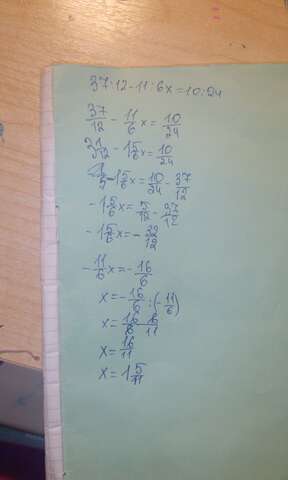 37:12-11:6x=10:24
37/12 - 11/6 x = 10/24
3 1/12 - 1 5/6 x = 10/24
- 1 5/6 x = 10/24 - 37/12
- 1 5/6 x = 5/12 - 37/12
- 1 5/6 x = - 32/12
- 11/6 x = - 16/6
x = - 16/6 : (- 11/6)
x = 16/6 · 6/11
x = 16/11
x = 1 5/11